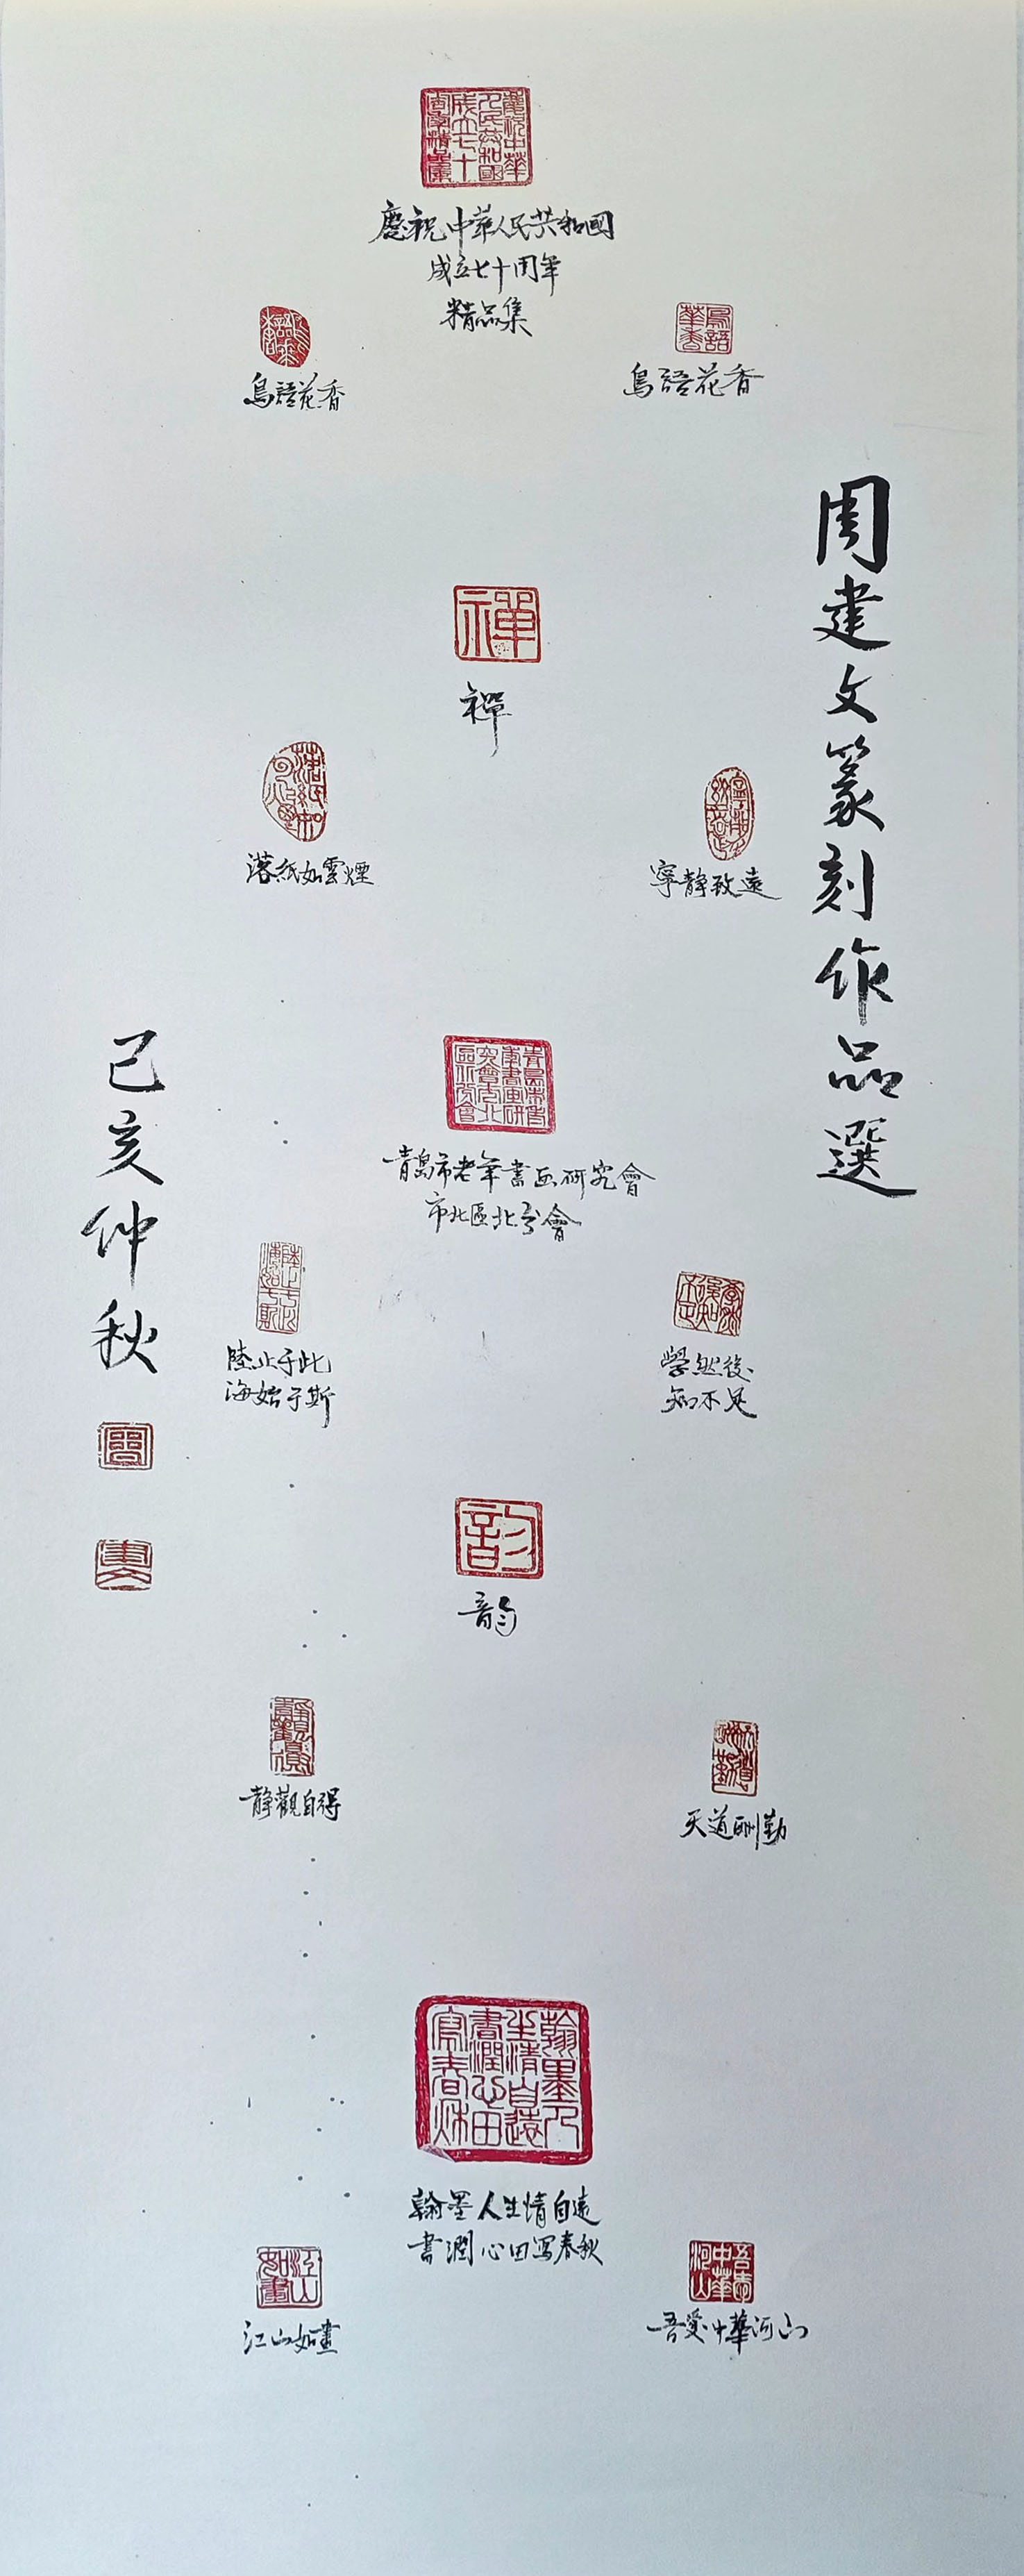 周建文篆刻作品選
慶祝中華人民共和國
成立七十周年
精品集
鳥語花香
鳥語花香
禪
寧静致遠
落紙如雲煙
青島市老年書画研究會
市北區北分會
學然後
知不足
陸止于此
海始于斯
韵
天道酬勤
静觀自得
翰墨人生情自遠
書潤心田写春秋
吾愛中華河山
江山如畫
己亥仲秋